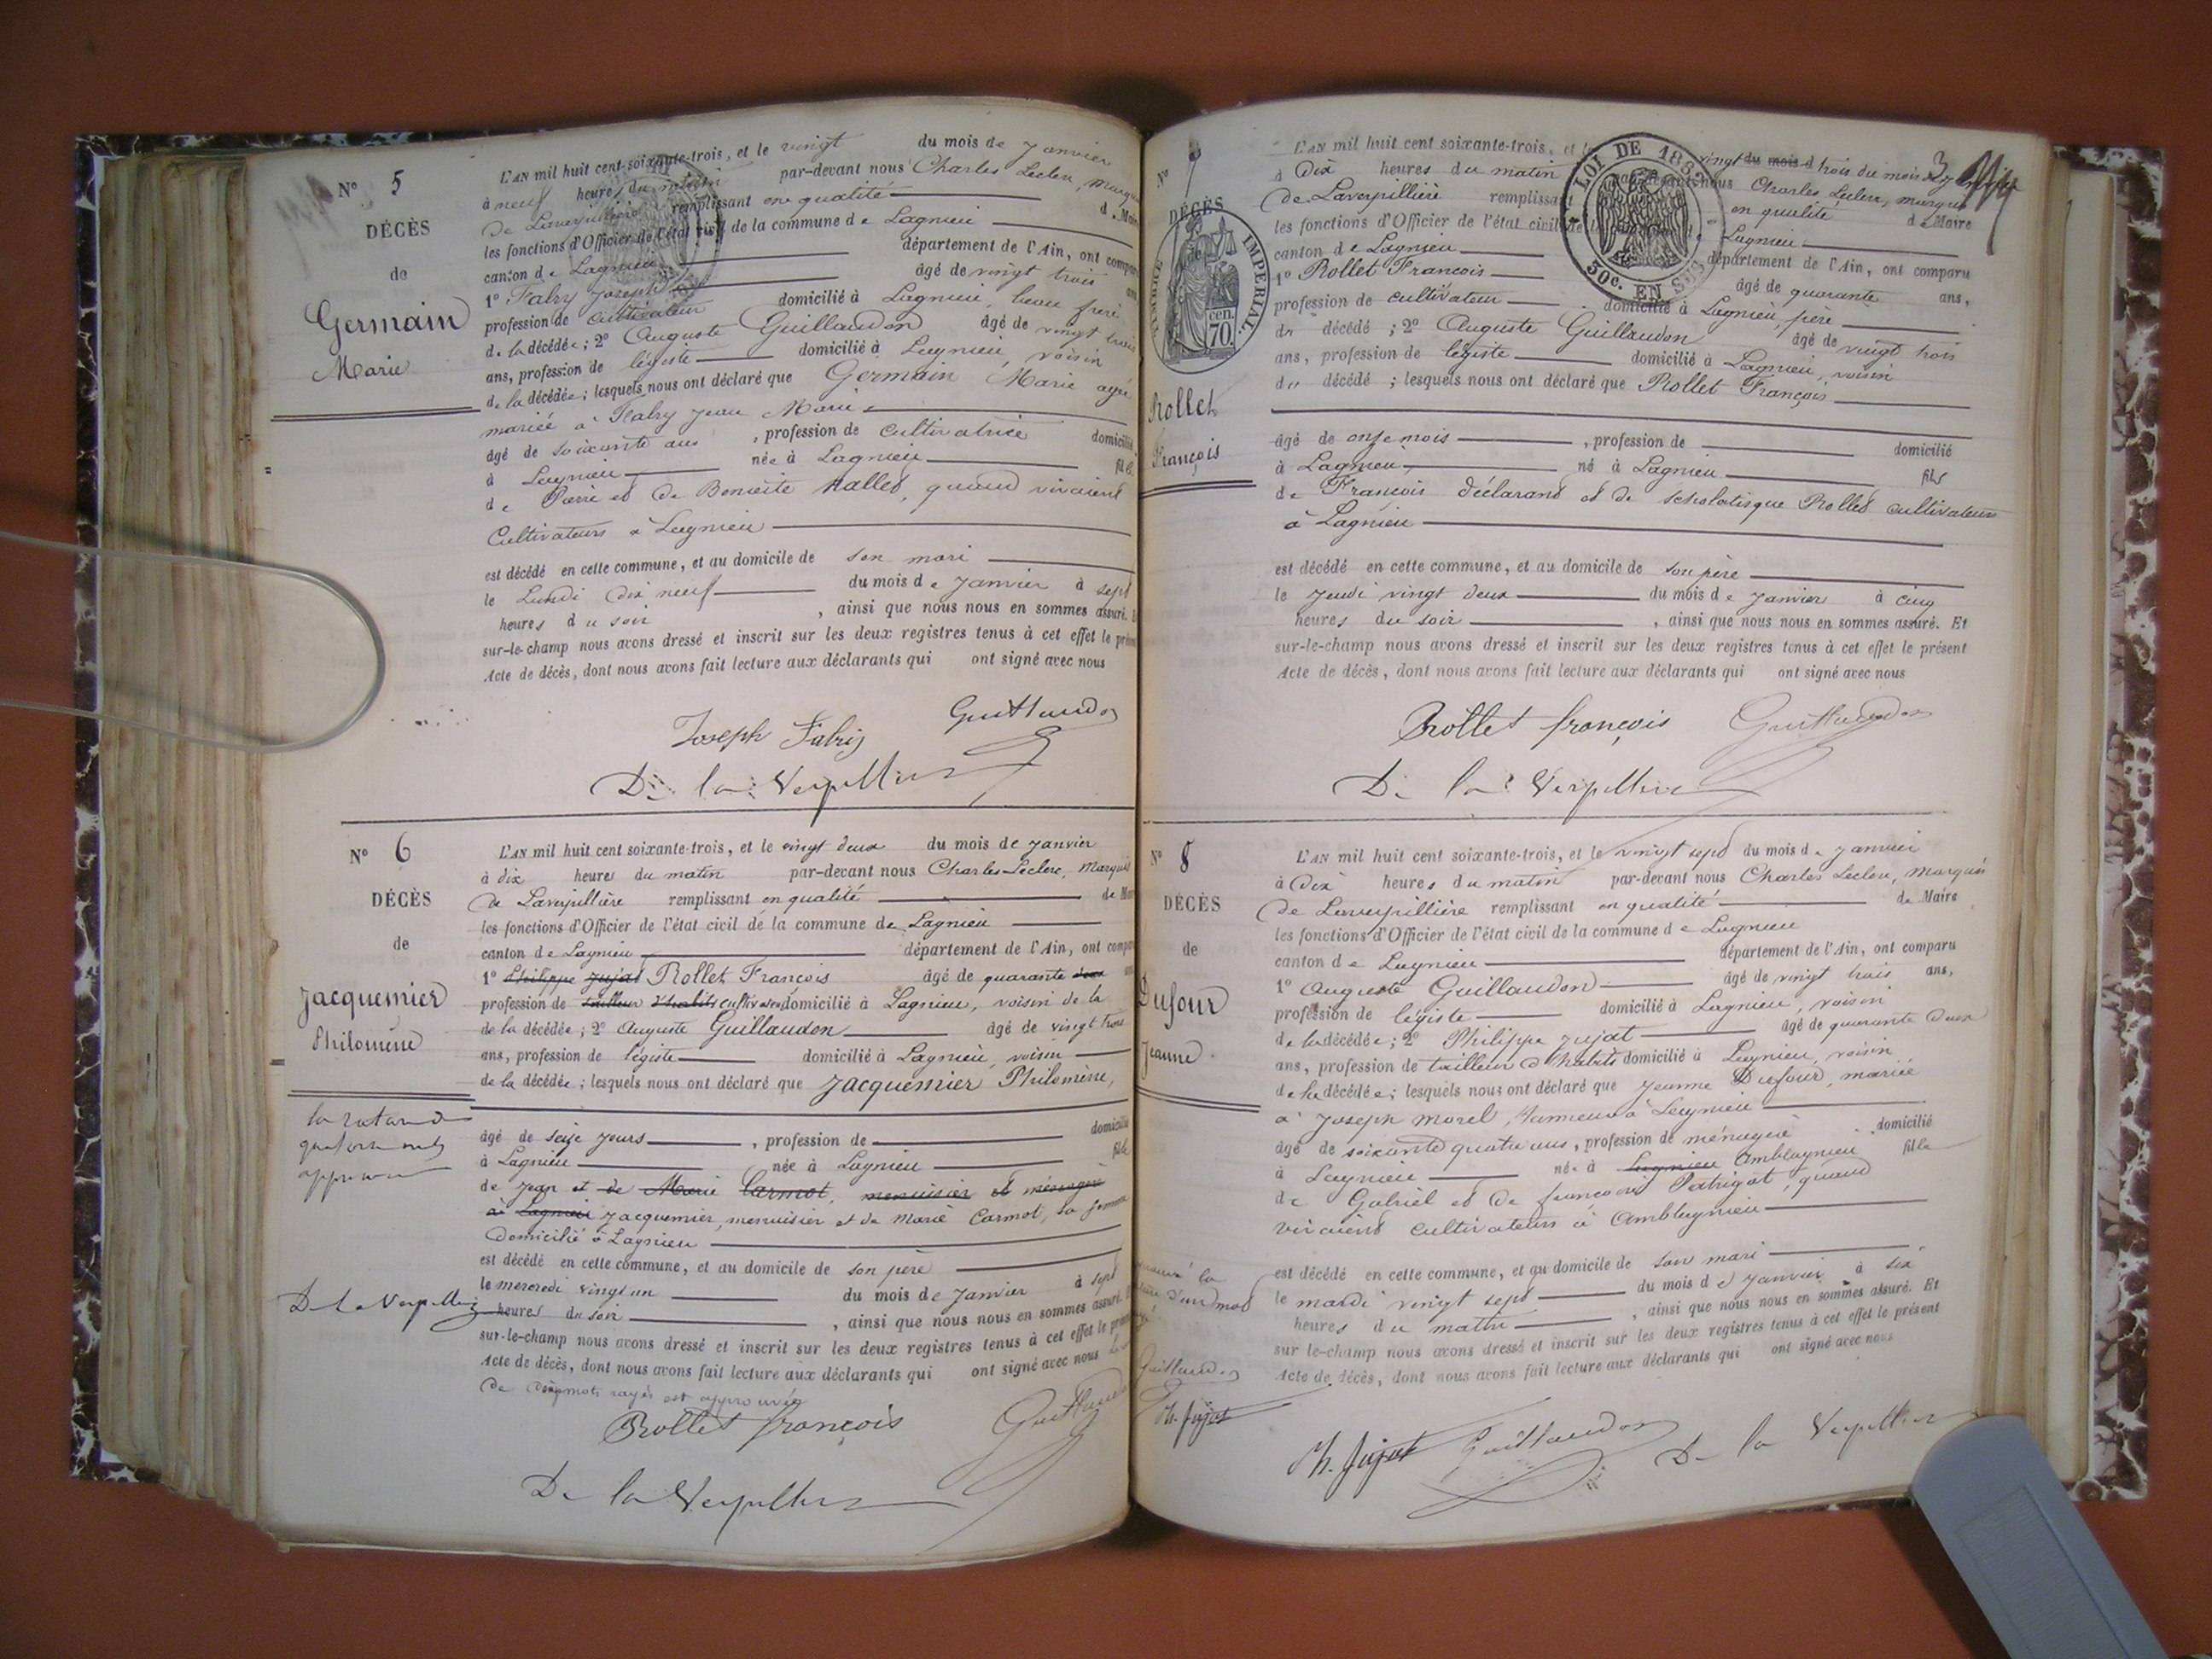 N° 5
DÉCÈS
de
Germain
Marie
L'AN mil huit cent soixante-trois, et le vingt du mois de Janvier
à neuf heures du matin par-devant nous Charles Leclerc, marquis
de Laverpillière remplissant en qualité de Maire
les fonctions d'Officier de l'état civil de la commune de Lagnieu
canton de Lagnieu département de l'Ain, ont comparu
1° Falry Joseph âgé de vingt trois ans,
profession de cultivateur domicilié à Lagnieu, beau frère
de la décédée; 2° Auguste Guillaudon âgé de vingt trois
ans, profession de légiste domicilié à Lagnieu, voisin
de la décédée; lesquels nous ont déclaré que Germain Marie
mariée à Falry Jean Marie
âgé de soixante ans, profession de cultivatrice domicilié
à Lagnieu née à Lagnieu fille
de Pierre et de Benoite Rallet, quand vivaient
Cultivateurs à Lagnieu
est décédé en cette commune, et au domicile de son mari
le Lundi dix neuf du mois de Janvier à sept
heures du soir, ainsi que nous nous en sommes assuré. Et
sur-le-champ nous avons dressé et inscrit sur les deux registres tenus à cet effet le présent
Acte de décès, dont nous avons fait lecture aux déclarants qui ont signé avec nous
Joseph Falry Guillaudon
De la Verpillière
N° 6
DÉCÈS
de
Jacquemier
Philomène
L'AN mil huit cent soixante-trois, et le vingt deux du mois de Janvier
à dix heures du matin par-devant nous Charles Leclerc, Marquis
de Laverpillière remplissant en qualité de Maire
les fonctions d'Officier de l'état civil de la commune de Lagnieu
canton de Lagnieu département de l'Ain, ont comparu
1° Philippe Jujat Rollet François âgé de quarante deux ans
profession de tailleur d'habits cultivateur domicilié à Lagnieu, voisin de la
de la décédée; 2° Auguste Guillaudon âgé de vingt trois
ans, profession de légiste domicilié à Lagnieu, voisin
de la décédée; lesquels nous ont déclaré que Jacquemier Philomène,
âgé de seize jours, profession de domicilié
à Lagnieu née à Lagnieu fille
de Jean et de Marie Carmot, menuisier et ménagère
à Lagnieu Jacquemier, menuisier et de Marie Carmot, sa femme
domicilié à Lagnieu
est décédé en cette commune, et au domicile de son père
le mercredi vingt un du mois de Janvier à sept
heures du soir, ainsi que nous nous en sommes assuré. Et
sur-le-champ nous avons dressé et inscrit sur les deux registres tenus à cet effet le présent
Acte de décès, dont nous avons fait lecture aux déclarants qui ont signé avec nous
mots rayés est approuvée
Rollet françois Guillaudon
De la Verpillière
De la Verpillière
N°
DÉCÈS
de
TIMBRE IMPERIAL
70 cen.
Rollet
François
LOI DE 1862
50c. EN SUS
L'AN mil huit cent soixante-trois, et le vingt du mois d trois du mois de Janvier
à Dix heures du matin par-devant nous Charles Leclerc, marquis
de Laverpillière remplissant en qualité de Maire
les fonctions d'Officier de l'état civil de la commune de Lagnieu
canton de Lagnieu département de l'Ain, ont comparu
1° Rollet François âgé de quarante ans,
profession de cultivateur domicilié à Lagnieu, père
du décédé; 2° Auguste Guillaudon âgé de vingt trois
ans, profession de légiste domicilié à Lagnieu, voisin
du décédé; lesquels nous ont déclaré que Rollet François
âgé de onze mois, profession de domicilié
à Lagnieu, né à Lagnieu fils
de François déclarant et de scholastique Rollet cultivateurs
à Lagnieu
est décédé en cette commune, et au domicile de son père
le jeudi vingt deux du mois de Janvier à cinq
heures du soir, ainsi que nous nous en sommes assuré. Et
sur-le-champ nous avons dressé et inscrit sur les deux registres tenus à cet effet le présent
Acte de décès, dont nous avons fait lecture aux déclarants qui ont signé avec nous
Rollet françois Guillaudon
De la Verpillière
N° 8
DÉCÈS
de
Dufour
Jeanne
L'AN mil huit cent soixante-trois, et le vingt sept du mois de Janvier
à Dix heures du matin par-devant nous Charles Leclerc, marquis
de Laverpillière remplissant en qualité de Maire
les fonctions d'Officier de l'état civil de la commune de Lagnieu
canton de Lagnieu département de l'Ain, ont comparu
1° Auguste Guillaudon âgé de vingt trois ans,
profession de légiste domicilié à Lagnieu, voisin
de la décédée; 2° Philippe Jujat âgé de quarante deux
ans, profession de tailleur d'habits domicilié à Lagnieu, voisin
de la décédée; lesquels nous ont déclaré que Jeanne Dufour, mariée
à Joseph Morel, tanneur à Lagnieu
âgé de soixante quatre ans, profession de ménagère domicilié
à Lagnieu née à Lagnieu Amblagnieu fille
de Gabriel et de françoise Patrigot, quand
vivaient cultivateurs à Amblagnieu
est décédé en cette commune, et au domicile de son mari
le mardi vingt sept du mois de Janvier à six
heures du matin, ainsi que nous nous en sommes assuré. Et
sur le-champ nous avons dressé et inscrit sur les deux registres tenus à cet effet le présent
Acte de décès, dont nous avons fait lecture aux déclarants qui ont signé avec nous
Guillaudon
Ph. Jujat
Ph. Jujat Guillaudon De la Verpillière